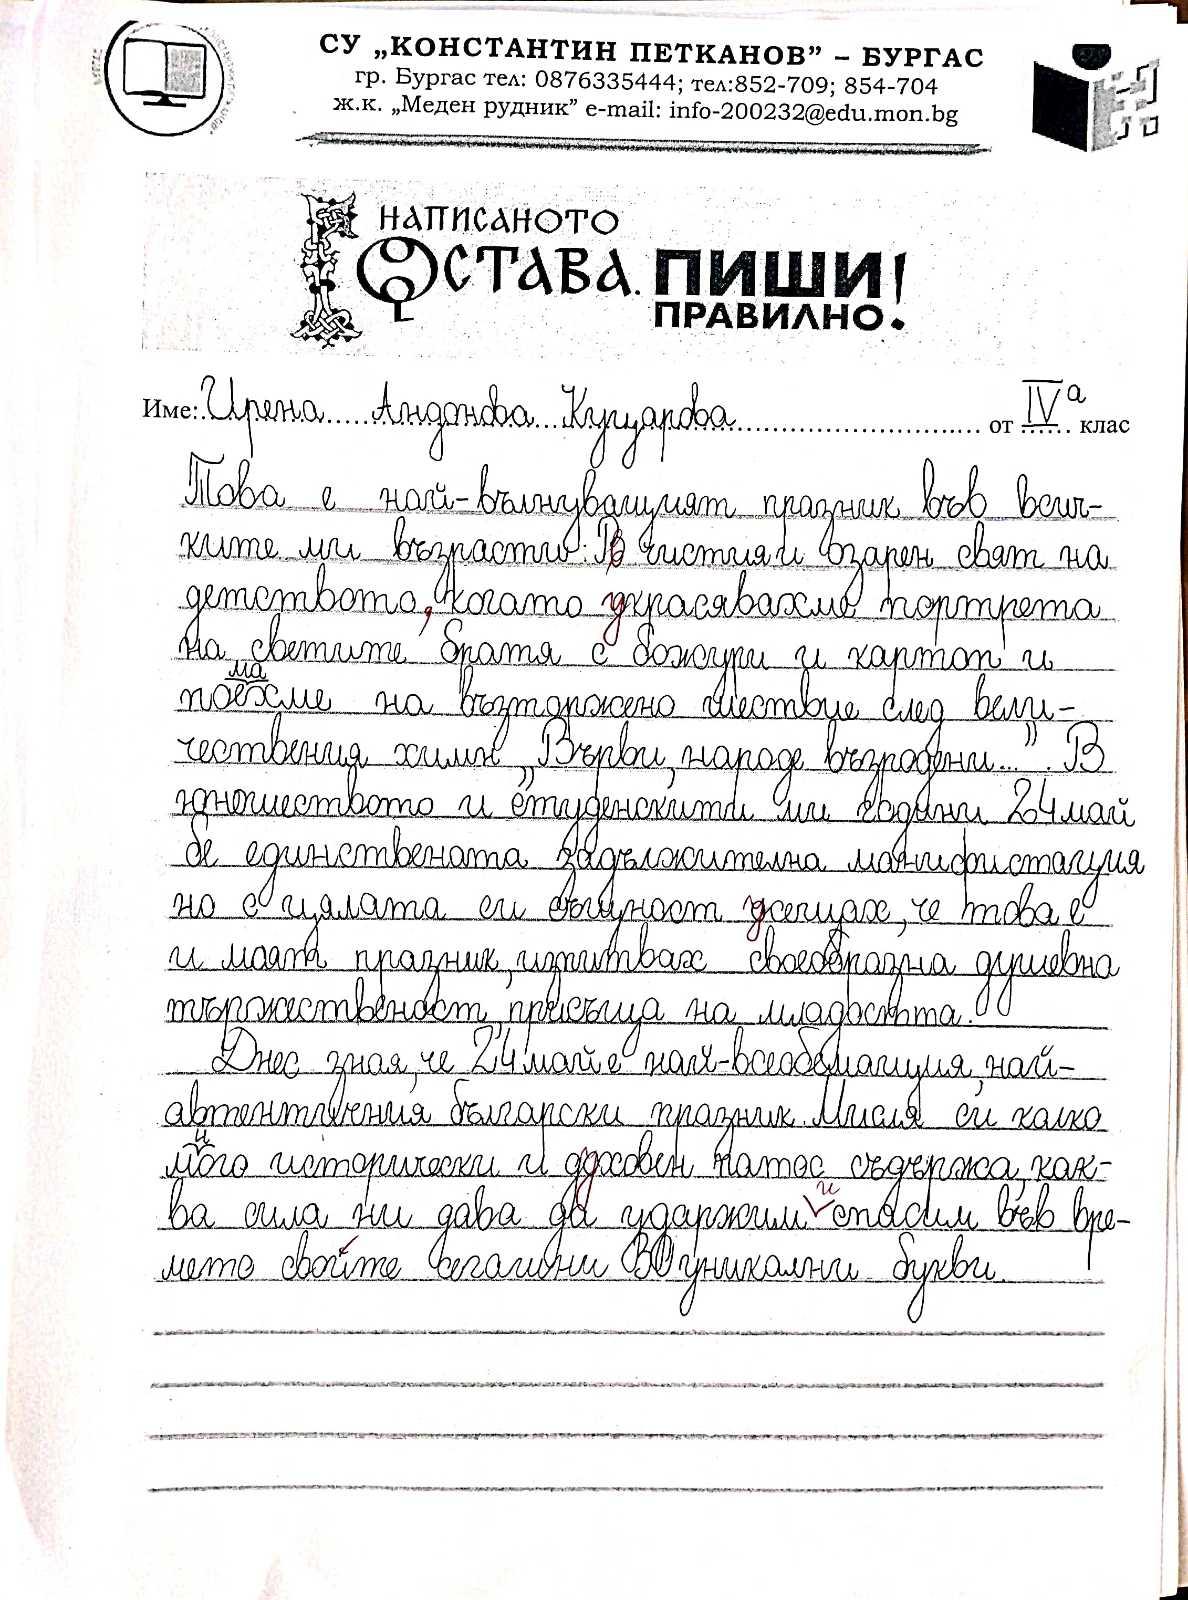 СУ „КОНСТАНТИН ПЕТКАНОВ” – БУРГАС
гр. Бургас тел: 0876335444; тел:852-709; 854-704
ж.к. „Меден рудник” e-mail: info-200232@edu.mon.bg
НАПИСАНОТО
ОСТАВА. ПИШИ!
ПРАВИЛНО.
Име: Ирена Андонова Куцарова от IVа клас
Това е най-вълнуващият празник във всич-
ките ми възрасти. В чистия и озарен свят на
детството, когато украсявахме портрета
на светите братя с божури и картон и
поемахме на възторжено шествие след вели-
чествения химн „Върви, народе възродени...” . В
юношеството и студенскити ми години 24 май
бе единствената задължителна манифистация
но с цялата си същност усещах, че това е
и моят празник, изпитвах своеобразна душевна
тържественост, присъща на младостта.
Днес зная, че 24 май е най-всеобемащия, най-
автентичния български празник. Мисля си колко
много исторически и духовен патос съдържа, как-
ва сила ни дава да ударжим и спасим във вре-
мето своите сегашни 30 уникални букви.